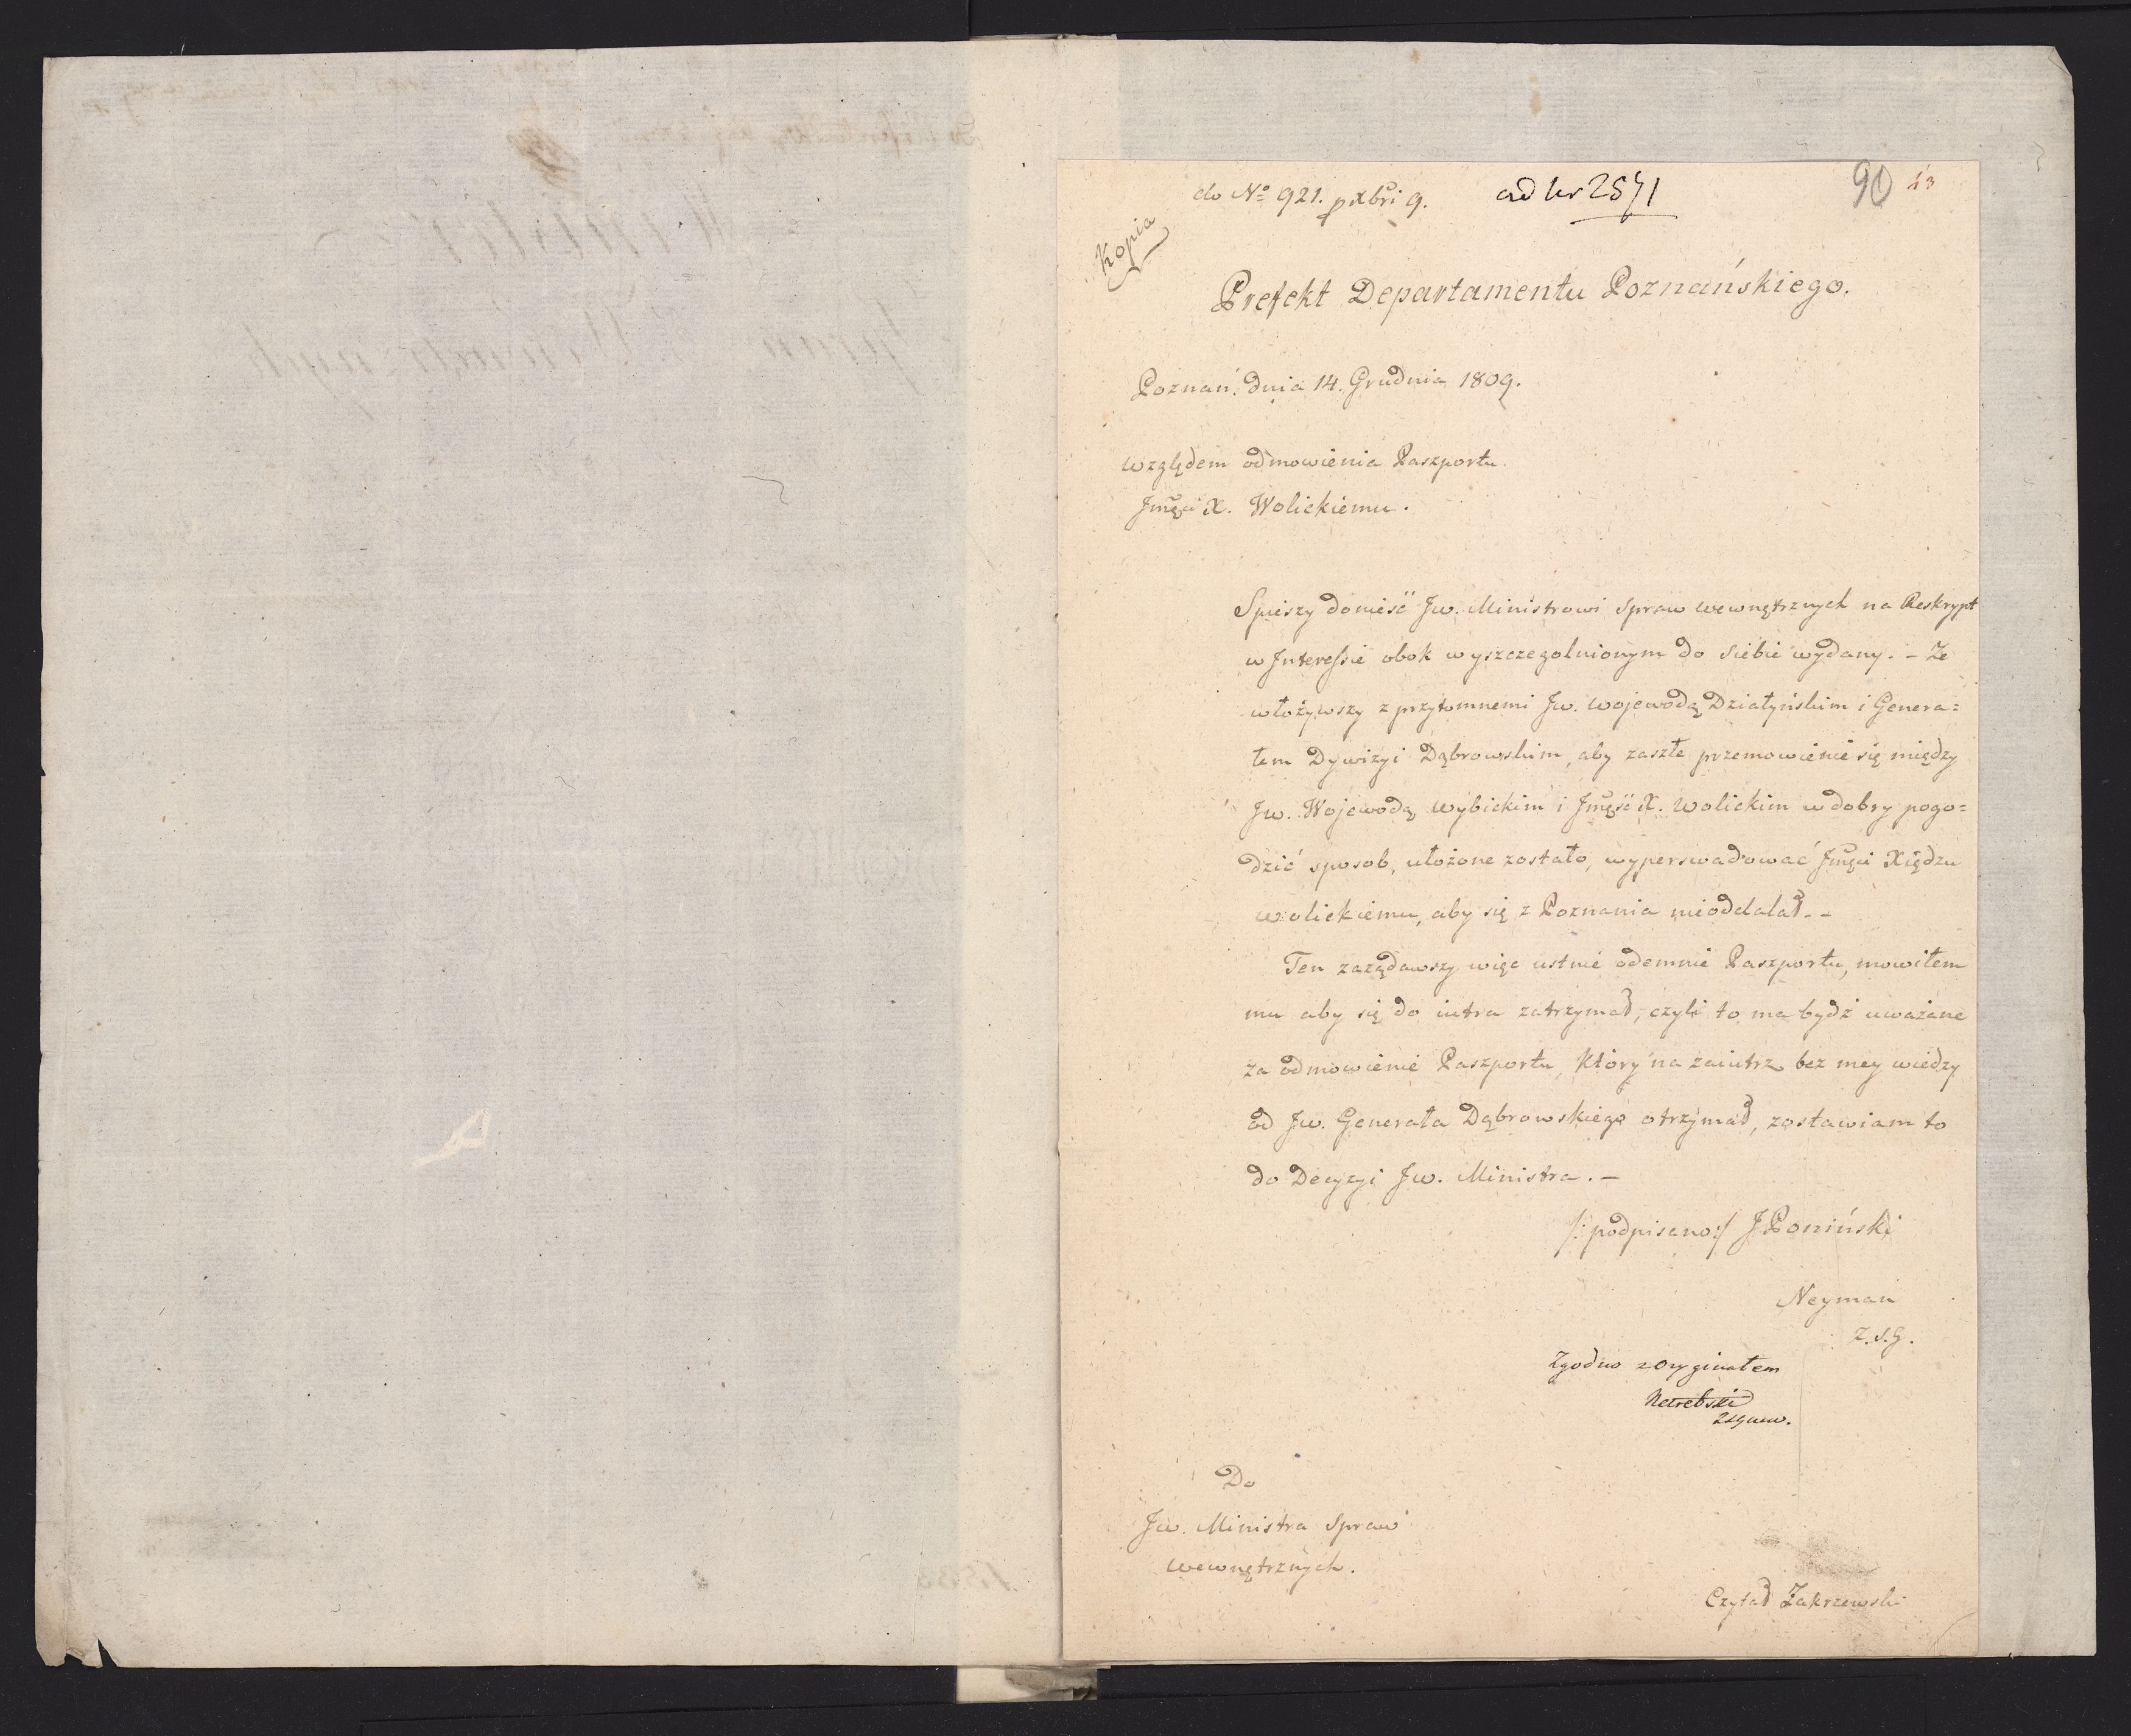 do No 921. pxbri 9.
ad Nr 2571
90
43
Kopia
Prefekt Departamentu Poznańskiego.
Poznań. dnia 14. Grudnia 1809.
Względem odmowienia Paszportu
Jmęci X. Wolickiemu.
Spieszy donieść Jw. Ministrowi Spraw wewnętrznych na Reskrypt
w Interessie obok wyszczegolnionym do siebie wydany. - Ze
włożywszy z przytomnemi Jw. Wojewodą Działyńskim i Genera=
łem Dywizyi Dąbrowskim, aby zaszłe przemowienie się między
Jw. Wojewodą Wybickim i Jmęść X. Wolickim w dobry pogo=
dzić sposob, ułożone zostało, wyperswadować Jmęci Xiędzu
Wolickiemu, aby się z Poznania nieoddalał. -
Ten zażądawszy więc ustnie odemnie Paszportu, mowiłem
mu aby się do iutra zatrzymał, czyli to ma bydź uważane
za odmowienie Paszportu, który na zaiutrz bez mey wiedzy
od Jw. Generała Dąbrowskiego otrzymał, zostawiam to
do Decyzyi Jw. Ministra. -
/: podpisano:/ J Poniński
Neyman
Z. S. G.
Zgodno z Oryginałem
Do
Jw. Ministra Spraw
wewnętrznych.
Czytał Zakrzewski